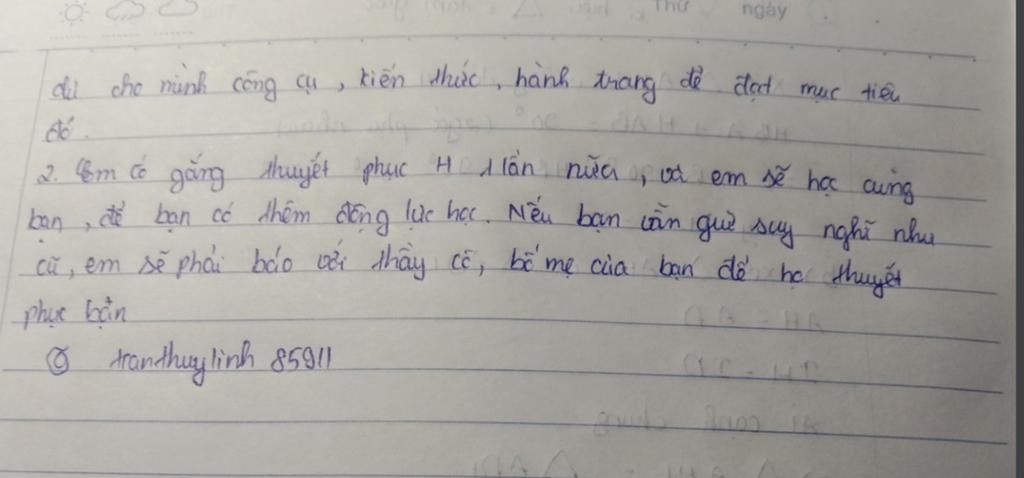 Thứ ngày
đủ cho mình công cụ, kiến thức, hành trang để đạt mục tiêu
đó.
2. Em cố gắng thuyết phục H 1 lần nữa, và em sẽ học cùng
bạn, để bạn có thêm động lực học. Nếu bạn vẫn giữ suy nghĩ như
cũ, em sẽ phải báo với thầy cô, bố mẹ của bạn để họ thuyết
phục bạn
@ tranthuylinh 85911